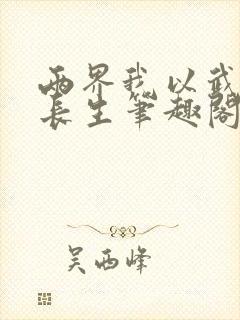 两界我以武
长生笔趣阁
吴西峰